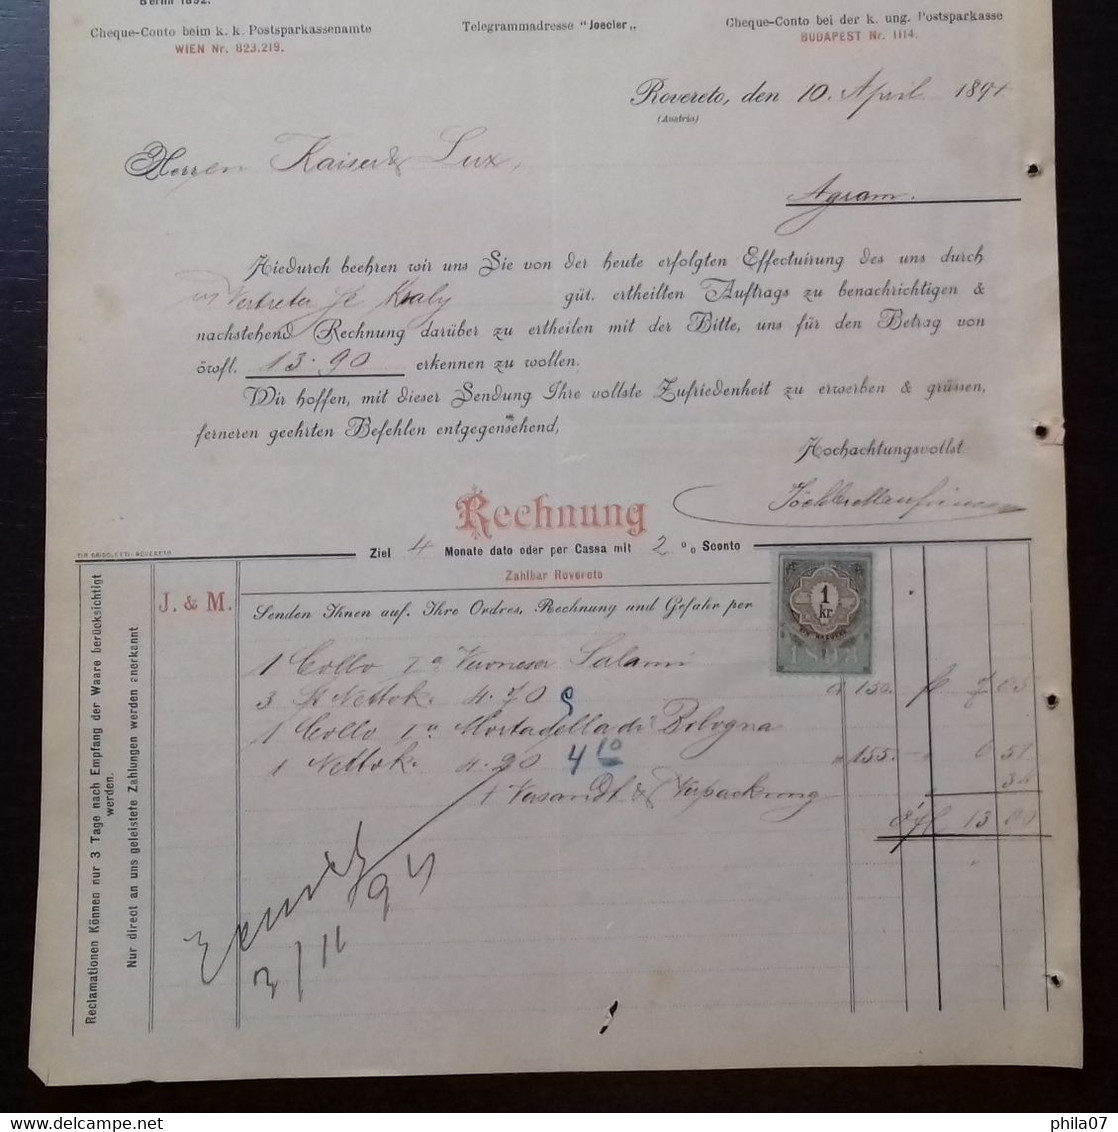 Berlin 1892.
Cheque-Conto beim k. k. Postsparkassenamte
WIEN Nr. 823.219.
Telegrammadresse "Joecler„
Cheque-Conto bei der k. ung. Postsparkasse
BUDAPEST Nr. 1114.
Rovereto, den 10. April 1894
(Austria)
Herren Kaiser & Lux,
Agram.
Hiedurch beehren wir uns Sie von der heute erfolgten Effectuirung des uns durch
Vertreter Kraly güt. ertheilten Auftrags zu benachrichtigen &
nachstehend Rechnung darüber zu ertheilen mit der Bitte, uns für den Betrag von
öwfl. 13.90 erkennen zu wollen.
Wir hoffen, mit dieser Sendung Ihre vollste Zufriedenheit zu erwerben & grüssen,
ferneren geehrten Befehlen entgegensehend,
Hochachtungsvollst
Rechnung
Ziel 4 Monate dato oder per Cassa mit 2 % Sconto
TIP. GRIGOLETTI - ROVERETO
Zahlbar Rovereto
J. & M.
Senden Ihnen auf. Ihre Ordres, Rechnung und Gefahr per
1 kr.
1893
1 Collo Ia Veroneser Salami
3 St Netto k. 4.70 a 150. fl 7 05
1 Collo Ia Mortadella di Bologna
1 Netto k. 4.20 4 10 a 155. 6 51
Versandt & Verpackung 34
öfl 13 90
3/11 94
Reclamationen Können nur 3 Tage nach Empfang der Waare berücksichtigt
werden.
Nur direct an uns geleistete Zahlungen werden anerkannt
phila07